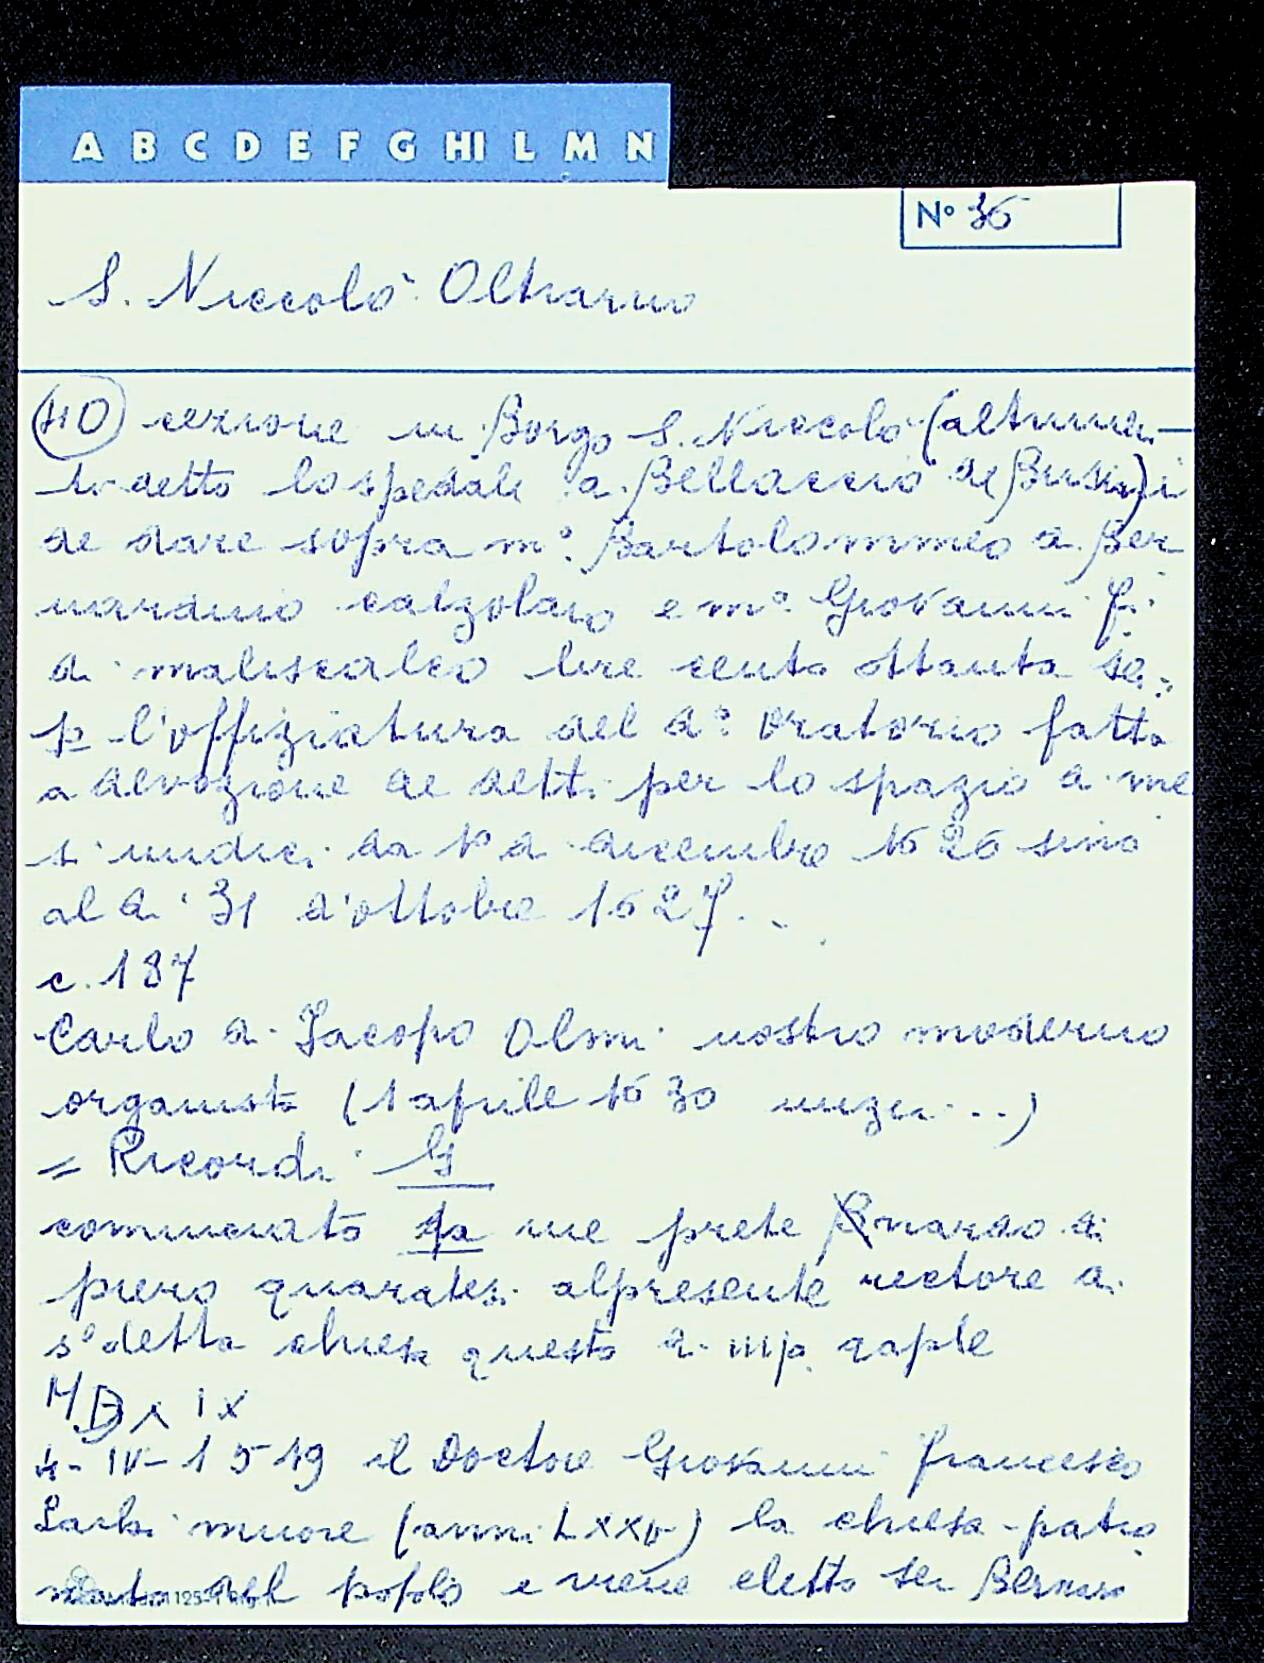 A B C D E F G HI L M N
N° 36
S. Niccolò Oltrarno
(40) cezione in Borgo S. Niccolò (altrimen-
ti detto lo spedale di Bellaccio de Bardi) i
de dare sopra m° Bartolommeo di Ber
nardino calzolaio e m° Giovanni f.
di maliscalco lire cento ottanta se.
p l'offiziatura del d° oratorio fatto
a devozione de detti per lo spazio di me
si undici da p° di dicembre 1626 sino
al dì 31 d'ottobre 1627.
c. 187
Carlo di Jacopo Olmi nostro moderno
organista (1 aprile 1630 inizi...)
= Ricordi G
cominciato da me prete Bnardo di
piero quaratesi al presente rectore di
s° detta chiesa questo dì iiij aaple
MDXIX
4-IV-1519 il Doctore Giovanni francesco
muore (anni LXXV) la chiesa patro
nato del popolo e viene eletto ser Bernar